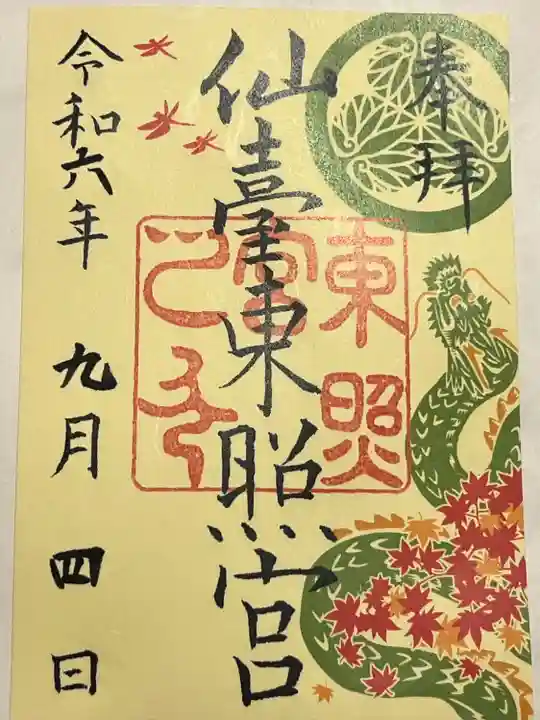 奉拝
仙臺東照宮
東照
宮
令和六年 九月 四日